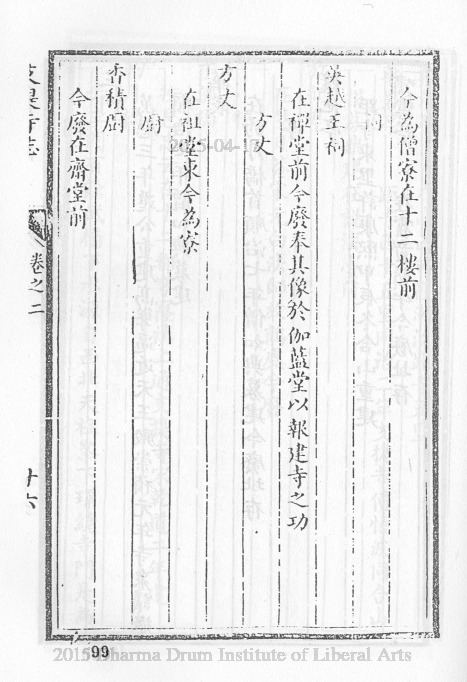 今為僧寮在十二樓前
祠
吳越王祠
在禪堂前今廢奉其像於伽藍堂以報建寺之功
方丈
方丈
在祖堂東今為寮
廚
香積廚
今廢在齋堂前
寺志
卷之二
十六
99
2015 Dharma Drum Institute of Liberal Arts